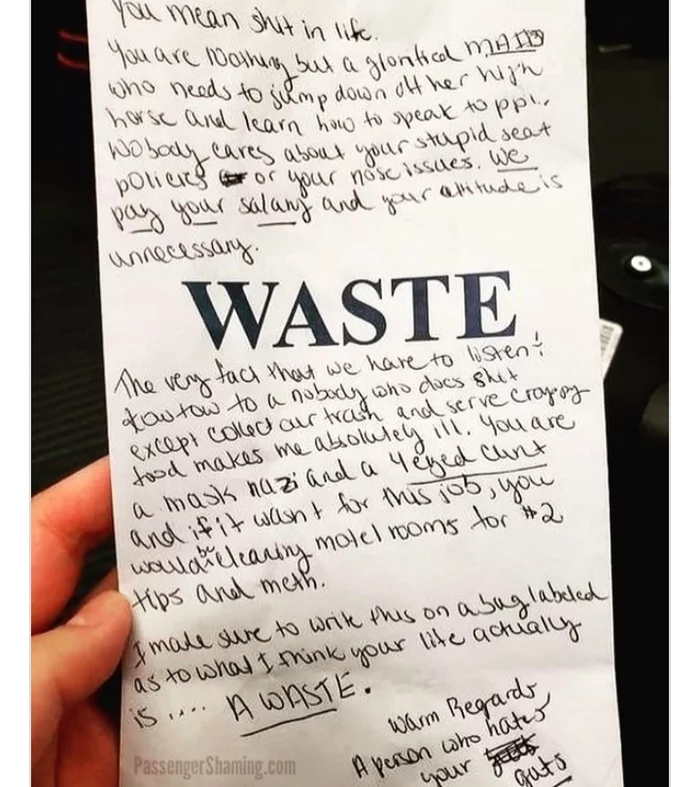 You mean shit in life.
You are nothing but a glorified MAID
who needs to jump down off her high
horse and learn how to speak to ppl.
Nobody cares about your stupid seat
policies or your nose issues. We
pay your salary and your attitude is
unnecessary.
WASTE
The very fact that we have to listen &
Kowtow to a nobody who does shit
except collect our trash and serve crappy
food makes me absolutely ill. You are
a mask nazi and a 4 eyed cunt
and if it wasn't for this job, you
would be cleaning motel rooms for #2
tips and meth.
I made sure to write this on a bag labeled
as to what I think your life actually
is .... A WASTE.
Warm Regards,
A person who hates
your guts
PassengerShaming.com